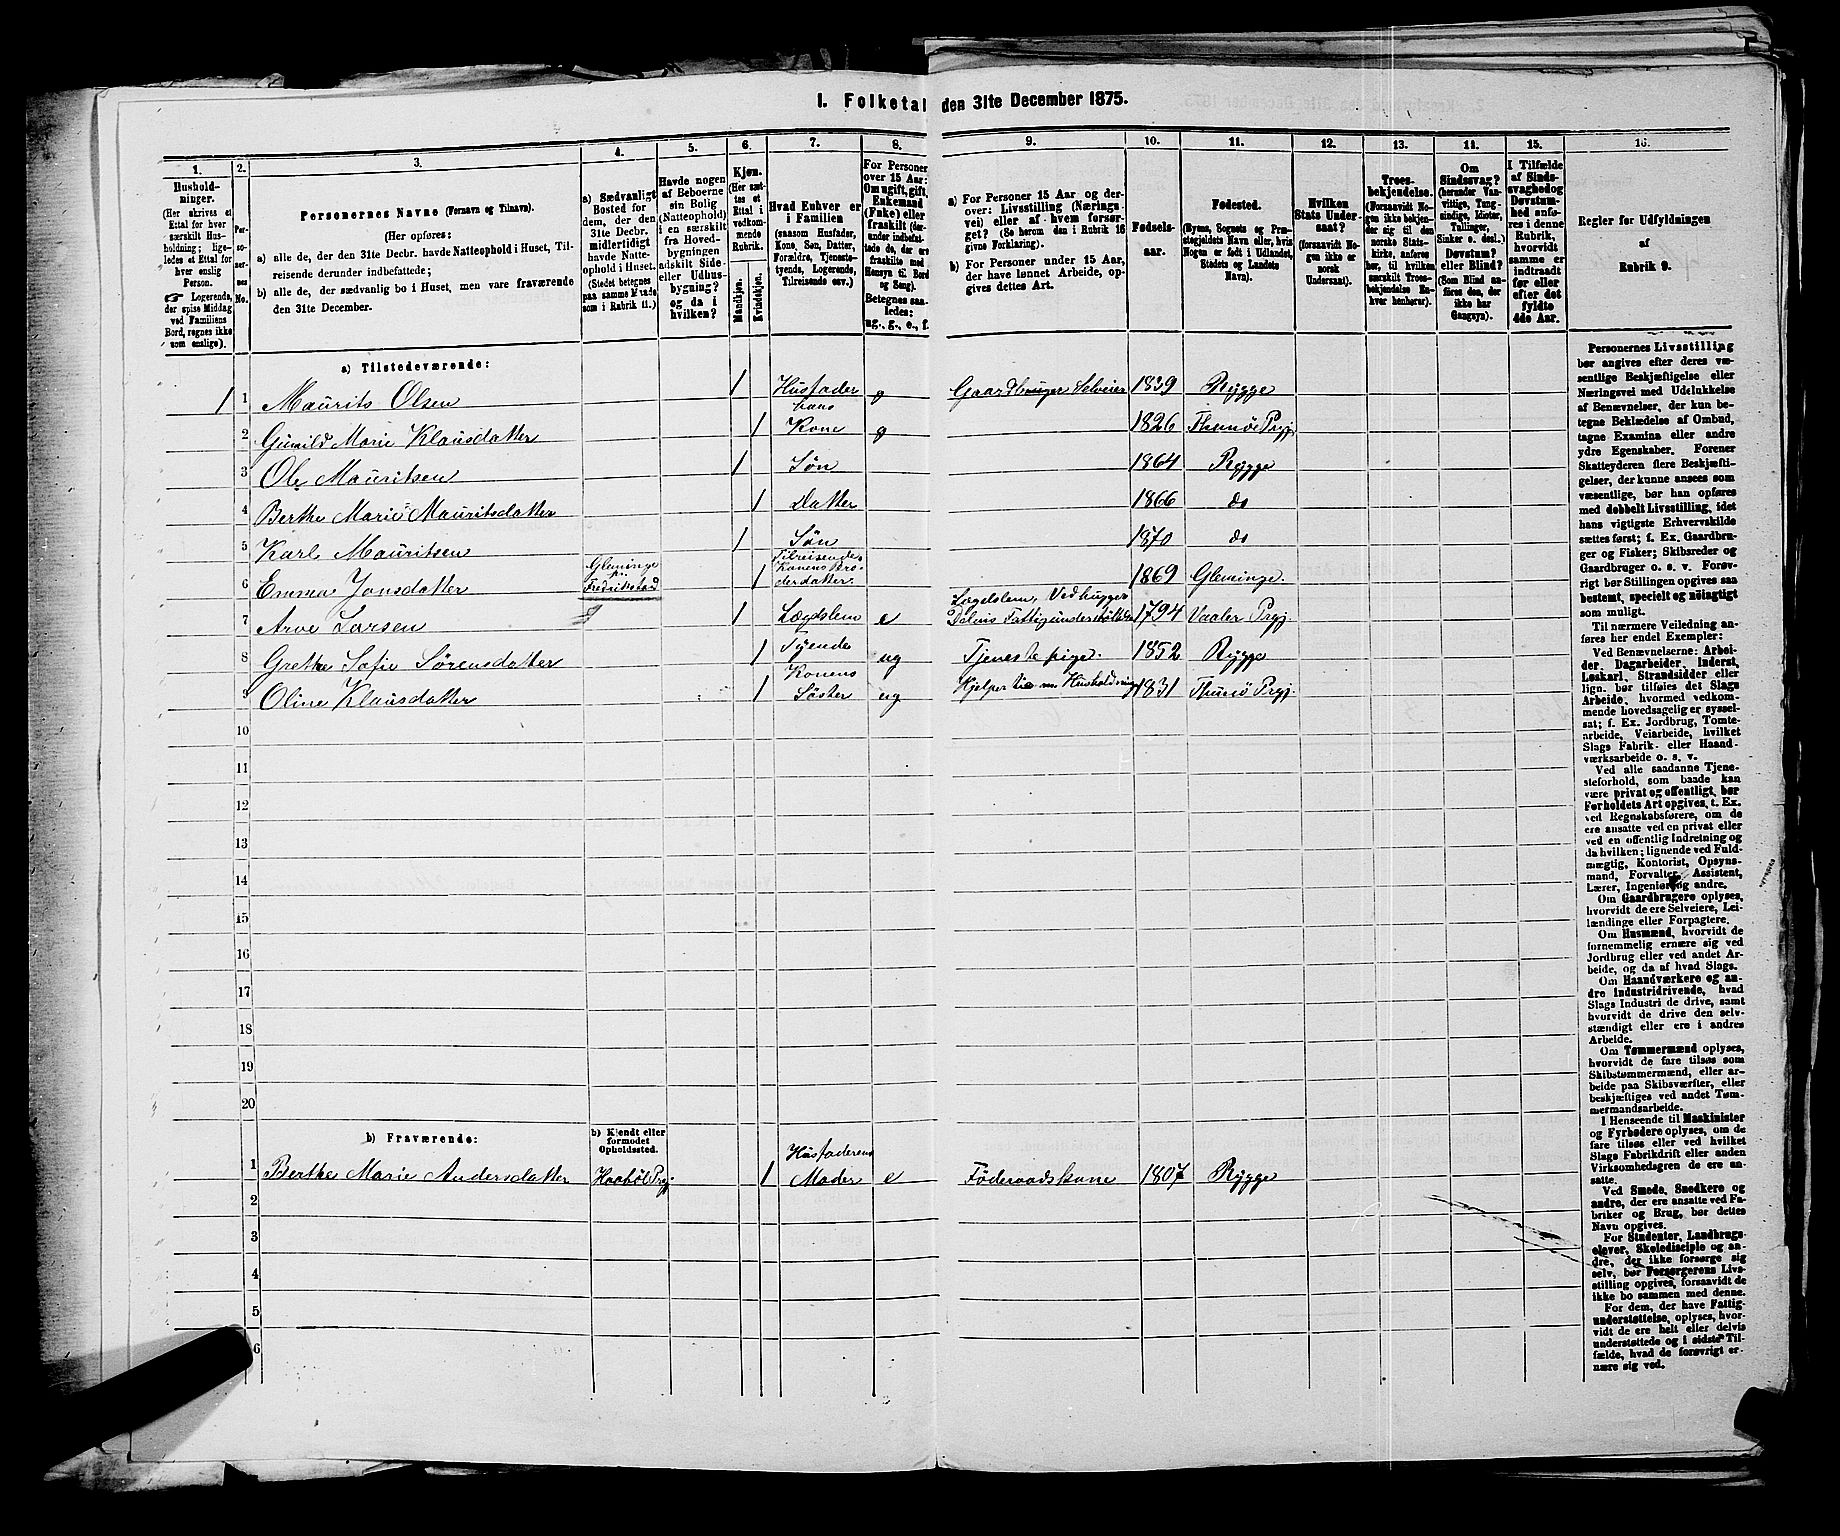 I. Folketal den 31te December 1875.
1.
Husholdninger.
(Her skrives et
Ettal for hver
særskilt Husholdning; ligeledes et Ettal for
hver enslig
Person.
☞ Logerende,
der spise Middag
ved Familiens
Bord, regnes ikke
som enslige).
2.
Personernes No.
3.
Personernes Navne (Fornavn og Tilnavn).
(Her opføres:
a) alle de, der den 31te Decbr. havde Natteophold i Huset, Tilreisende derunder indbefattede;
b) alle de, der sædvanlig bo i Huset, men vare fraværende
den 31te December.
4.
a) Sædvanligt
Bosted for
dem, der den
31te Decbr.
midlertidigt
havde Natteophold i Huset.
(Stedet betegnes
paa samme Maade
som i Rubrik 11.)
5.
Havde nogen
af Beboerne
sin Bolig
(Natteophold)
i en særskilt
fra Hovedbygningen
adskilt Side-
eller Udhusbygning?
og da i
hvilken?
6.
Kjøn.
(Her sættes et
Ettal i
vedkommende
Rubrik.
Mandkjøn.
Kvindekjøn.
7.
Hvad Enhver er
i Familien
(saasom Husfader,
Kone, Søn, Datter,
Forældre, Tjenestetyende, Logerende,
Tilreisende osv.)
8.
For Personer
over 15 Aar:
Om ugift, gift,
Enkemand
(Enke) eller
fraskilt (derunder indbefattede de, der ere
fraskilte med
Hensyn til Bord
og Seng).
Betegnes saaledes:
ug., g., e., f.
9.
a) For Personer 15 Aar og derover: Livsstilling (Næringsvei) eller af hvem forsørget? (Se herom den i Rubrik 16
givne Forklaring).
b) For Personer under 15 Aar,
der have lønnet Arbeide, opgives dettes Art.
10.
Fødselsaar.
11.
Fødested.
(Byens, Sognets og Præstegjeldets Navn eller, hvis
Nogen er født i Udlandet,
Stedets og Landets
Navn).
12.
Hvilken
Stats Undersaat?
(forsaavidt Nogen ikke er
norsk
Undersaat).
13.
Troesbekjendelse.
(Forsaavidt Nogen ikke bekjender sig til den
norske Statskirke, anføres
her, til hvilken
særskilt Troesbekjendelse Enhver henhører).
14.
Om
Sindssvag?
(herunder Vanvittige, Tungsindige, Idioter,
Tullinger,
Sinker o. desl.)
Døvstum?
eller Blind?
(Som Blind anføres den, der
ikke har
Gangsyn).
15.
I Tilfælde
af Sindssvaghed og
Døvstumhed anføres i denne
Rubrik,
hvorvidt
samme er
indtraadt
før eller
efter det
fyldte
4de Aar.
16.
Regler for Udfyldningen
af
Rubrik 9.
a) Tilstedeværende:
1 1 Maurits Olsen 1 Husfader g Gaardbruger Selveier 1839 Rygge
2 Gunild Marie Klausdatter 1 hans Kone g 1826 Thunø Prgj.
3 Ole Mauritsen 1 Søn 1864 Rygge
4 Berthe Marie Mauritsdatter 1 Datter 1866 do
5 Karl Mauritsen 1 Søn 1870 do
6 Emma Jonsdatter Gleminge pr. Fredrikstad 1 Tilreisende, Konens Broderdatter. 1869 Gleminge.
7 Arve Larsen 1 Lægdslem e Lægdslem, Vedhugger Delvis Fattigunderstøttelse 1794 Vaaler Prgj.
8 Grethe Sofie Sørensdatter 1 Tyende ug Tjenestepige. 1852 Rygge
9 Oline Klausdatter 1 Konens Søster ug Hjelper til m. Husholdning 1831 Thunø Prgj.
10
11
12
13
14
15
16
17
18
19
20
b) Fraværende:
b) Kjendt eller
formodet
Opholdssted.
1 Berthe Marie Andersdatter Haabøl Prgj. 1 Husfaderens Moder e Föderaadskone 1807 Rygge
2
3
4
5
6
Personernes Livsstilling
bør angives efter deres væsentlige Beskjæftigelse eller
Næringsvei med Udelukkelse
af Benævnelser, der kun betegne Beklædelse af Ombud,
tagne Examina eller andre
ydre Egenskaber. Forener
Skatteyderen flere Beskjæftigelser, der kunne ansees som
væsentlige, bør han opføres
med dobbelt Livsstilling, idet
hans vigtigste Erhvervskilde
sættes først; f. Ex. Gaardbruger og Fisker; Skibsreder og
Gaardbruger o. s. v. Forøvrigt bør Stillingen opgives saa
bestemt, specielt og nøiagtigt
som muligt.
Til nærmere Veiledning anføres her endel Exempler:
Ved Benævnelserne: Arbeider, Dagarbeider, Inderst,
Løskarl, Strandsidder eller
lign. bør tilføies det Slags
Arbeide, hvormed vedkommende hovedsagelig er sysselsat; f. Ex. Jordbrug, Tomtearbeide, Veiarbeide, hvilket
Slags Fabrik- eller Haandværksarbeide o. s. v.
Ved alle saadanne Tjenesteforhold, som baade kan
være privat og offentligt, bør
Forholdets Art opgives, t. Ex.
ved Regnskabsførere, om de
ere ansatte ved en privat eller
ved en offentlig Indretning og
da hvilken; lignende ved Fuldmægtig, Kontorist, Opsynsmand, Forvalter, Assistent,
Lærer, Ingeniør og andre.
Om Gaardbrugere oplyses,
hvorvidt de ere Selveiere, Leilændinge eller Forpagtere.
Om Husmænd, hvorvidt de
fornemmelig ernære sig ved
Jordbrug eller ved andet Arbeide, og da af hvad Slags.
Om Haandværkere og andre industridrivende, hvad
Slags Industri de drive, samt
hvorvidt de drive den selvstændigt eller ere i andres
Arbeide.
Om Tømmermænd oplyses,
hvorvidt de fare tilsøs som
Skibstømmermænd, eller arbeide paa Skibsværfter, eller
beskjæftiges ved andet Tømmermandsarbeide.
I Henseende til Maskinister
og Fyrbødere oplyses, om de
fare tilsøs eller ved hvilket
Slags Fabrikdrift eller anden
Virksomhedsgren de ere ansatte.
Ved Smede, Snedkere og
andre, der ere ansatte ved Fabriker og Brug, bør dettes
Navn opgives.
For Studenter, Landbrugselever, Skoledisciple og andre, der ikke forsørge sig
selv, bør Forsørgerens Livsstilling opgives, forsaavidt de
ikke bo sammen med denne.
For dem, der have Fattigunderstøttelse, oplyses, hvorvidt de ere helt eller delvis
understøttede og i sidste Tilfælde, hvad de forøvrigt ernære sig ved.